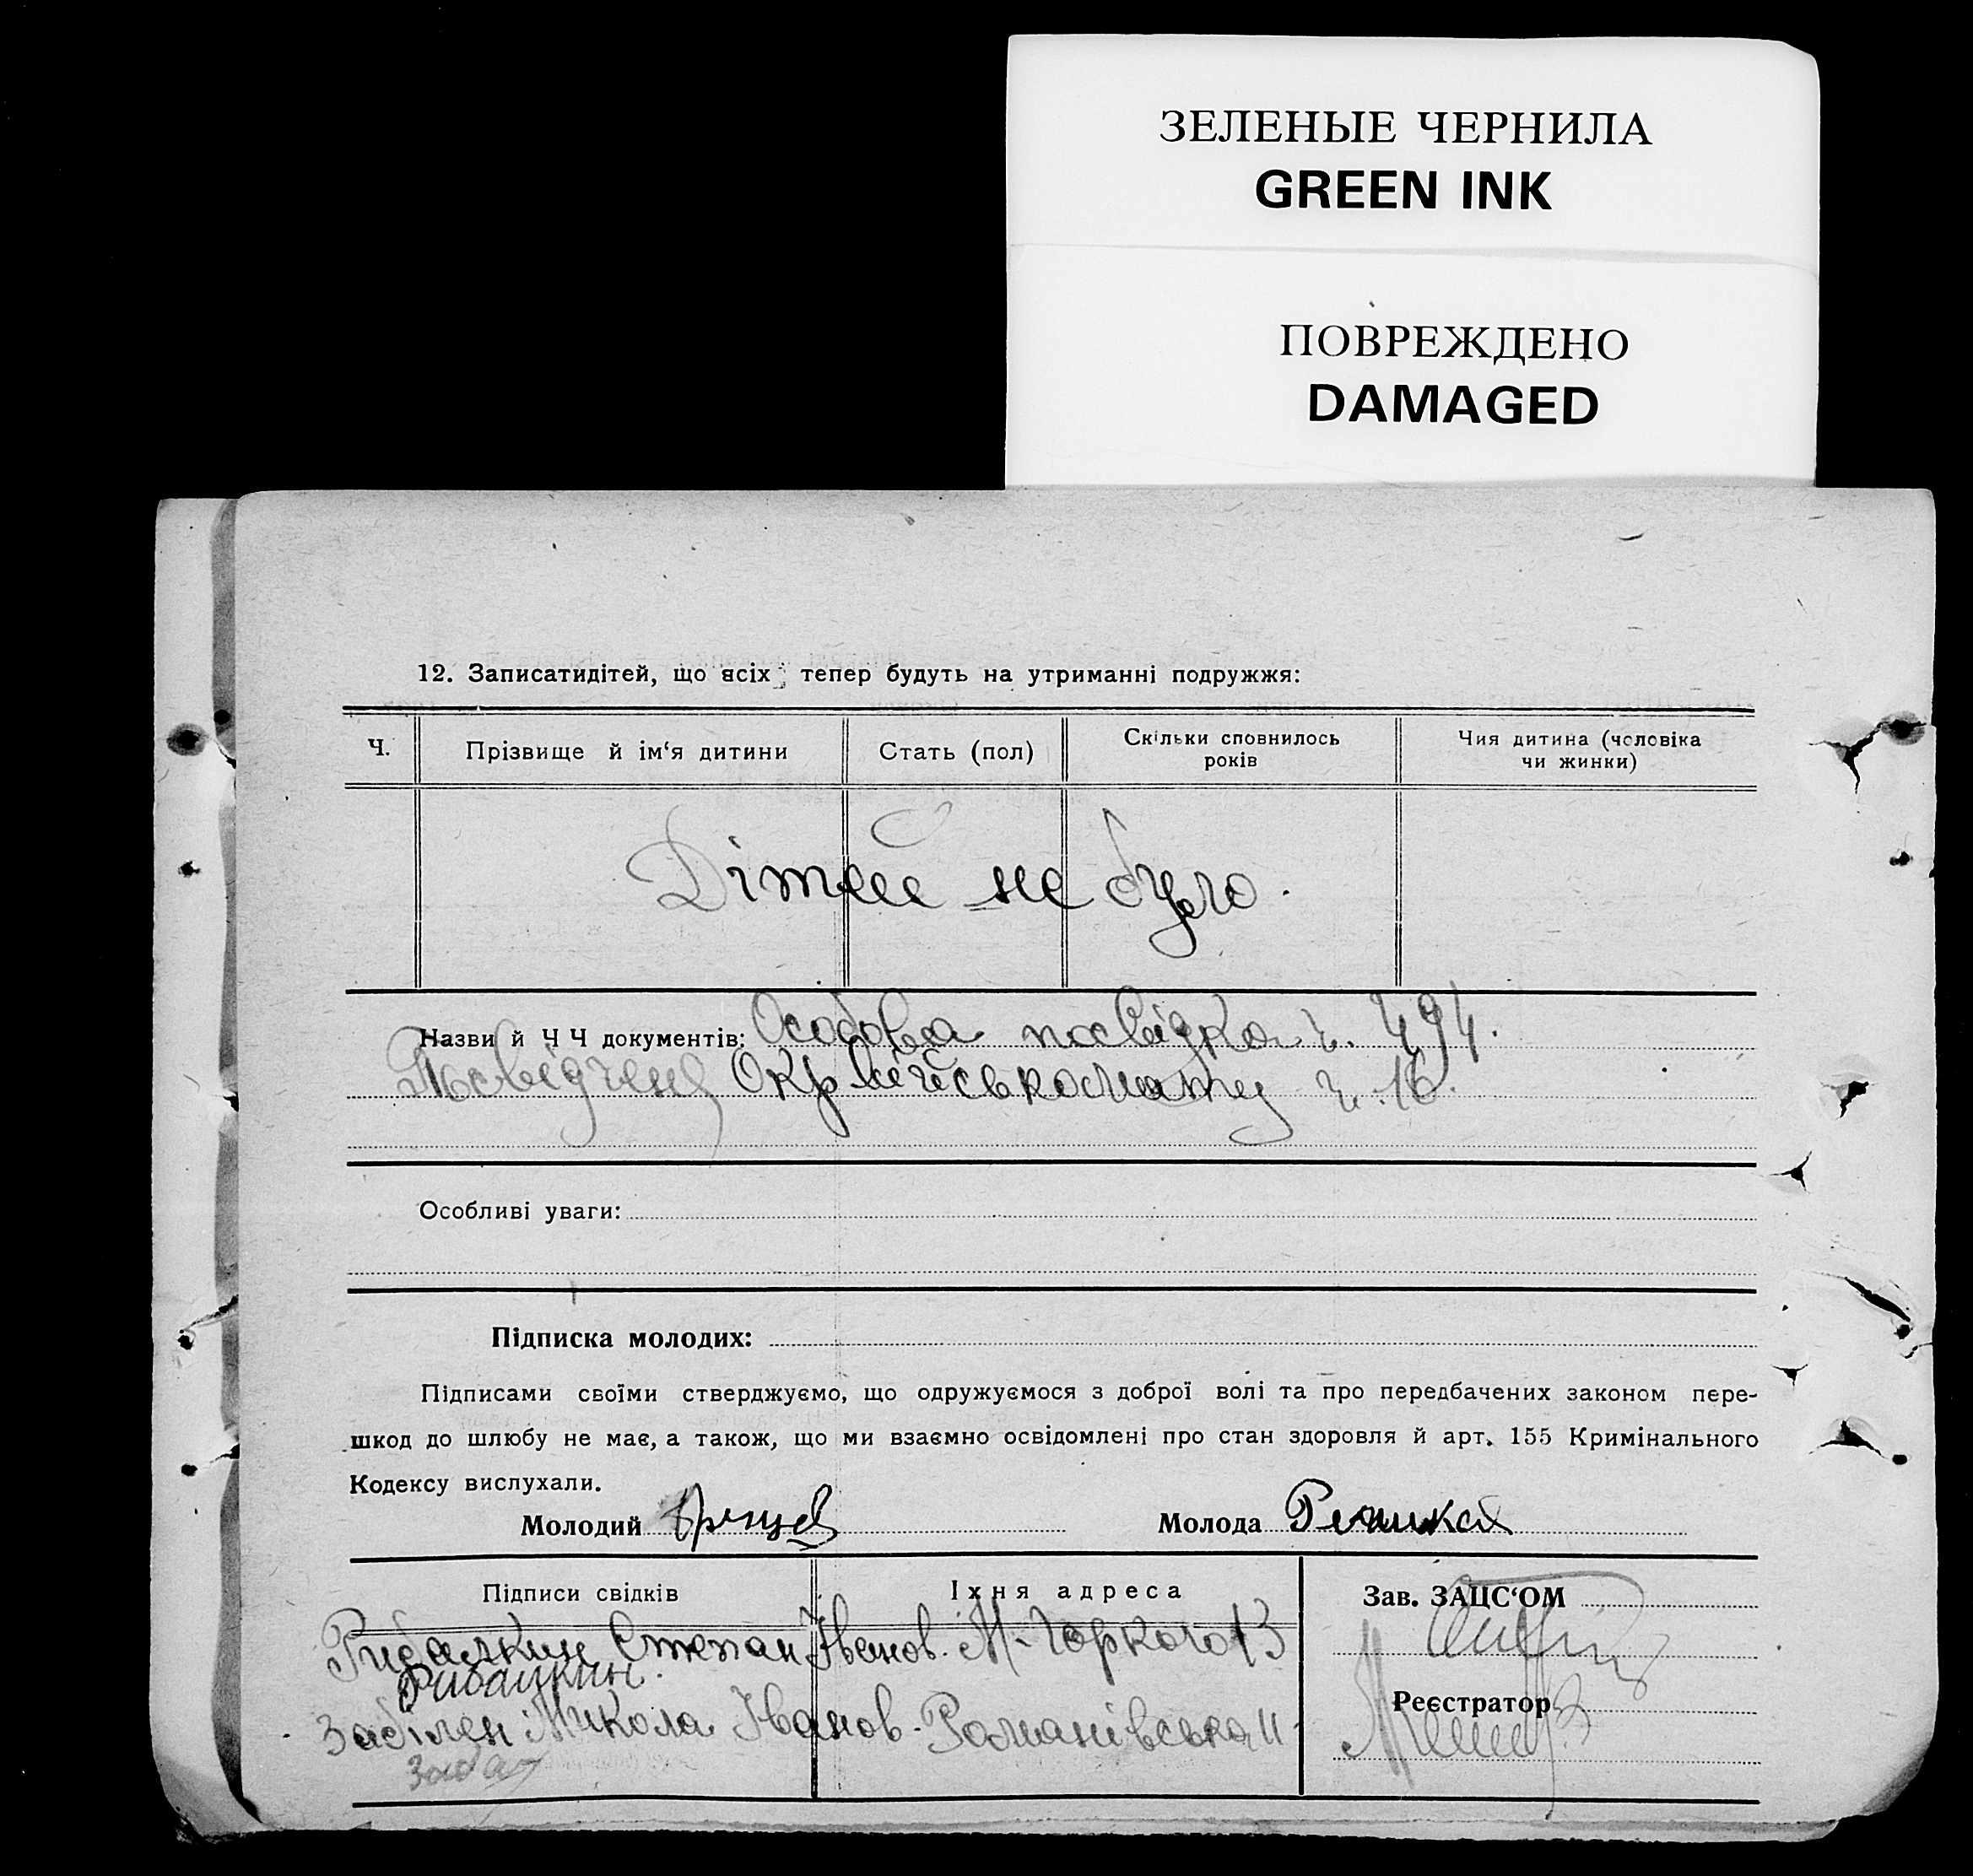 ЗЕЛЕНЫЕ ЧЕРНИЛА
GREEN INK
ПОВРЕЖДЕНО
DAMAGED
12. Записатидітей, що всіх тепер будуть на утриманні подружжя:
Ч.
Прізвище й ім‘я дитини
Стать (пол)
Скільки сповнилось
років
Чия дитина (чоловіка
чи жинки)
Дітей не було.
Назви й Ч Ч документів: Особова посвідка ч. 494.
Посвідчення Окр ч. 16.
Особливі уваги:
Підписка молодих:
Підписами своїми стверджуємо, що одружуємося з доброї волі та про передбачених законом пере-
шкод до шлюбу не має, а також, що ми взаємно освідомлені про стан здоровля й арт. 155 Кримінального
Кодексу вислухали.
Молодий
Молода
Підписи свідків
Їхня адреса
Зав. ЗАЦС‘ОМ
Рибалкин Степан Іванов. М-Горкого 13
Рибалкин
Реєстратор
Микола Іванов. Романівська 11